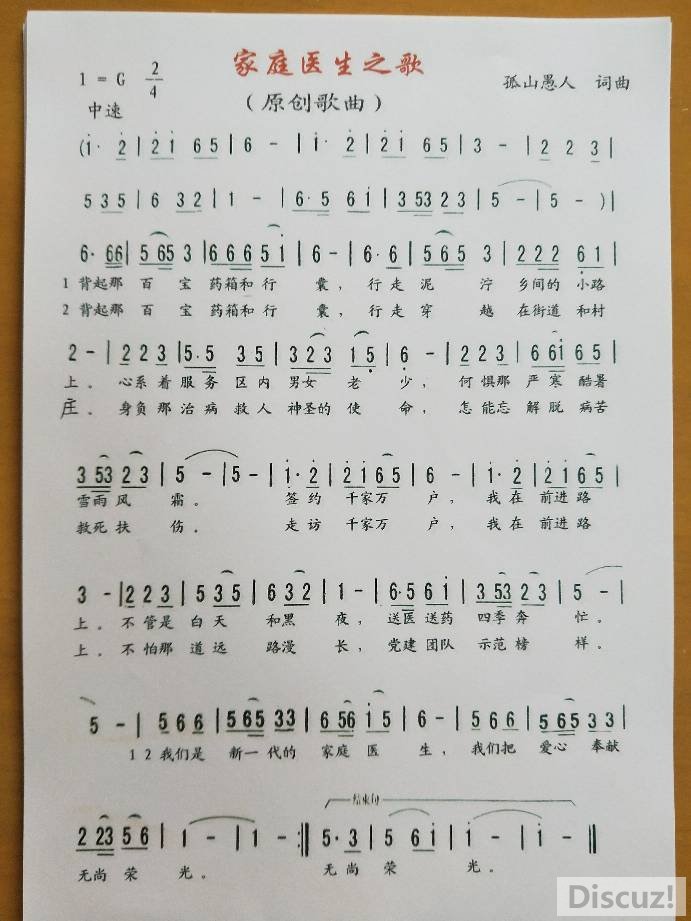 家庭医生之歌
1 = G 2/4
孤山愚人 词曲
中速
(原创歌曲)
(i· 2 | 2 i 6 5 | 6 - | i· 2 | 2 i 6 5 | 3 - | 2 2 3 |
5 3 5 | 6 3 2 | 1 - | i· 2 | 2 i 6 5 | 3 53 2 3 | 5 - | 5 - )|
6· 66 | 5 65 3 | 6 6 6 5 i | 6 - | 6· i | 5 6 5 3 | 2 2 2 6 1 |
1 背起那 百 宝 药箱和 行 囊, 行 走 泥 泞 乡间的 小路
2 背起那 百 宝 药箱和 行 囊, 行 走 穿 越 在街道 和村
2 - | 2 2 3 | 5· 5 3 5 | 3 2 3 1 5 | 6 - | 2 2 3 | 6 6i 6 5 |
上。 心系着 服务 区内 男女 老 少, 何惧那 严寒 酷暑
庄。 身负那 治病 救人 神圣的 使 命, 怎能忘 解脱 病苦
3 53 2 3 | 5 - | 5 - | i· 2 | 2 i 6 5 | 6 - | i· 2 | 2 i 6 5 |
雪雨 风 霜。 签约 千家万 户, 我在 前进路
救死 扶 伤。 走访 千家万 户, 我在 前进路
3 - | 2 2 3 | 5 3 5 | 6 3 2 | 1 - | 6· 5 6 1 | 3 53 2 3 | 5 - |
上。 不管是 白天 和黑 夜, 送医 送药 四季 奔 忙。
上。 不怕那 道远 路漫 长, 党建 团队 示范 榜 样。
5 - | 5 6 6 | 5 6 5 3 3 | 6 56 i 5 | 6 - | 5 6 6 | 5 6 5 3 3 |
1 2 我们是 新一代的 家庭 医 生, 我们把 爱心 奉献
结束句
2 23 5 6 | 1 - | 1 - :‖ 5· 3 | 5 6 i | i - | i - ‖
无尚 荣 光。 无尚 荣 光。
Discuz!